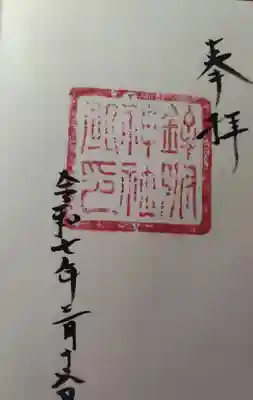 奉拝
神社
印
令和七年二月十六日